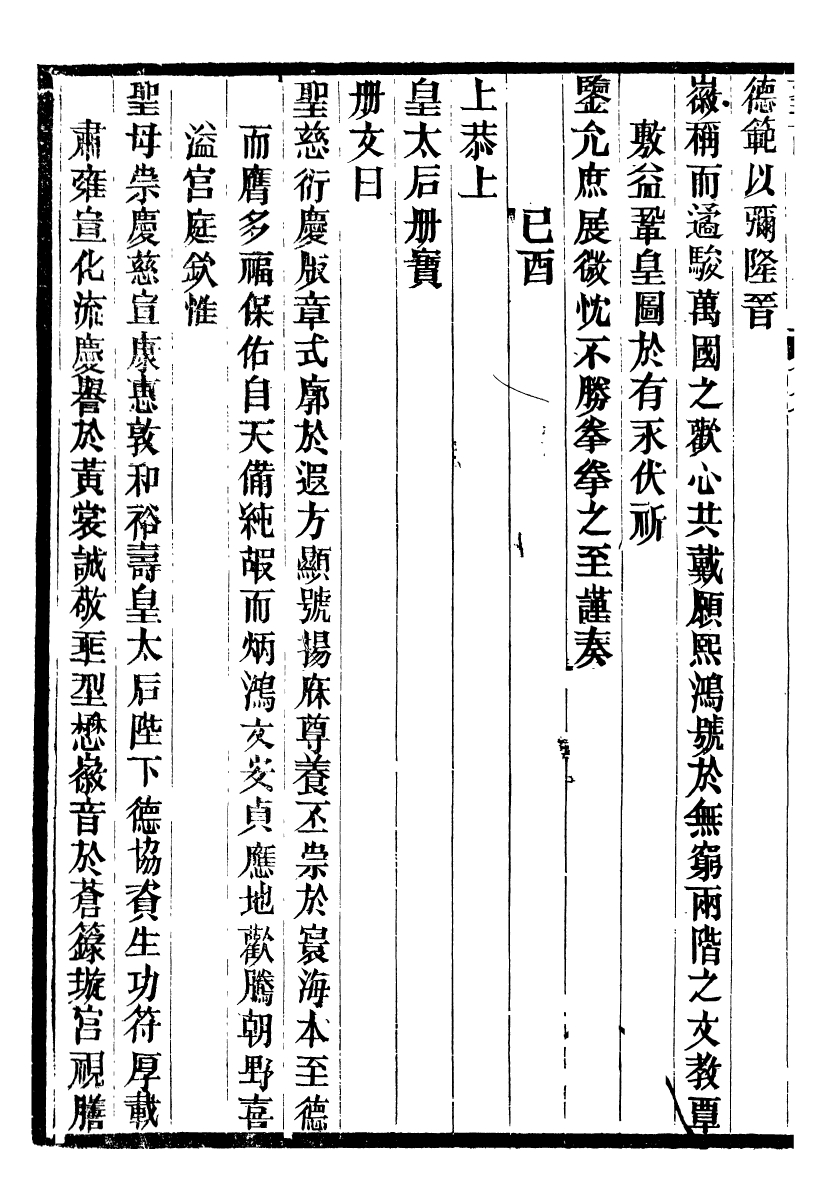 德範以彌隆晉
徽稱而遹駿萬國之歡心共戴願熙鴻號於無窮兩階之文教覃
敷益鞏皇圖於有永伏祈
鑒允庶展微忱不勝拳拳之至謹奏
己酉
上恭上
皇太后册寶
册文曰
聖慈衍慶版章式廓於遐方顯號揚庥尊養丕崇於寰海本至德
而膺多福保佑自天備純嘏而炳鴻文安貞應地歡騰朝野喜
溢宮庭欽惟
聖母崇慶慈宣康惠敦和裕壽皇太后陛下德協資生功符厚載
肅雍宣化流慶譽於黃裳誠敬垂型懋徽音於蒼籙璇宮視膳